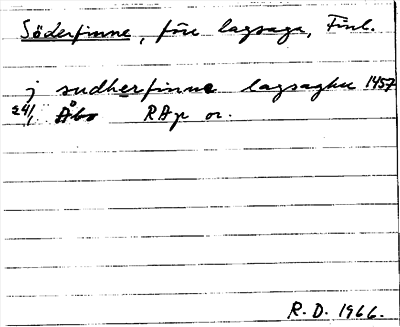 Söderfinne, före lagsaga, Finl.
j sudherfinne lagsaghu 1457
24/1 Åbo RAp or.
R.D. 1966.